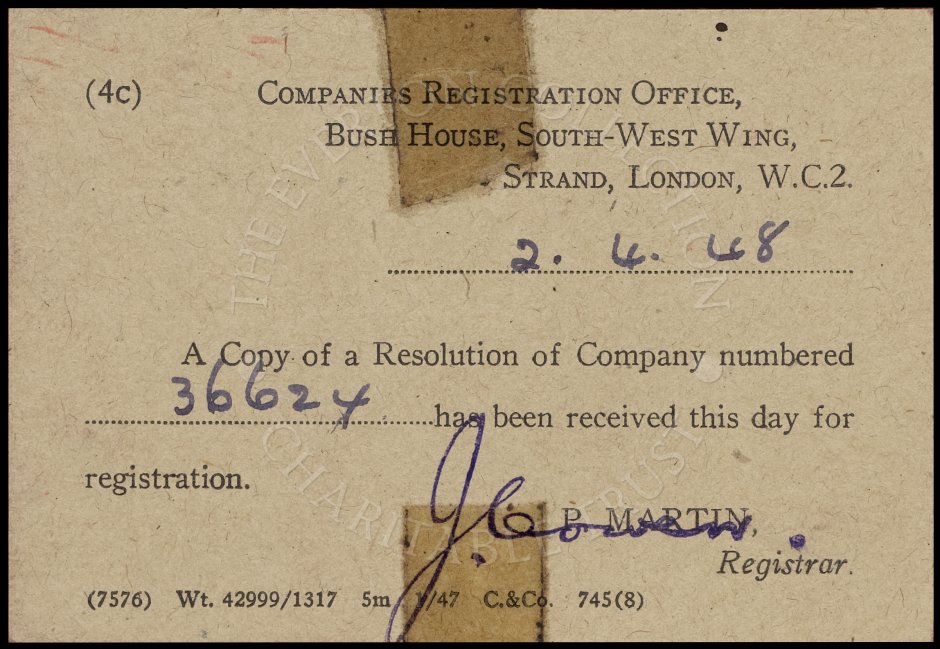 (4c) COMPANIES REGISTRATION OFFICE,
BUSH HOUSE, SOUTH-WEST WING,
STRAND, LONDON, W.C.2.
2. 4. 48
A Copy of a Resolution of Company numbered
36624 has been received this day for
registration.
P. MARTIN,
Registrar.
(7576) Wt. 42999/1317 5m 1/47 C.&Co. 745(8)
THE EVERTON COLLECTION
CHARITABLE TRUST